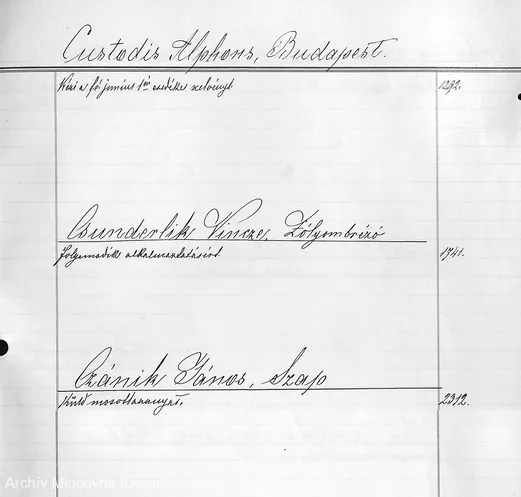 Custodis Alphons, Budapest.
Kéri a f. é. junius 1én esedékes szelvényt. 1292.
Csunderlik Vincze, Zólyombrézó
folyamodik alkalmaztatásért. 1741.
Czánik János, Szap
Küld mosottaranyat. 2312.
Archiv Mincovne Kremnica